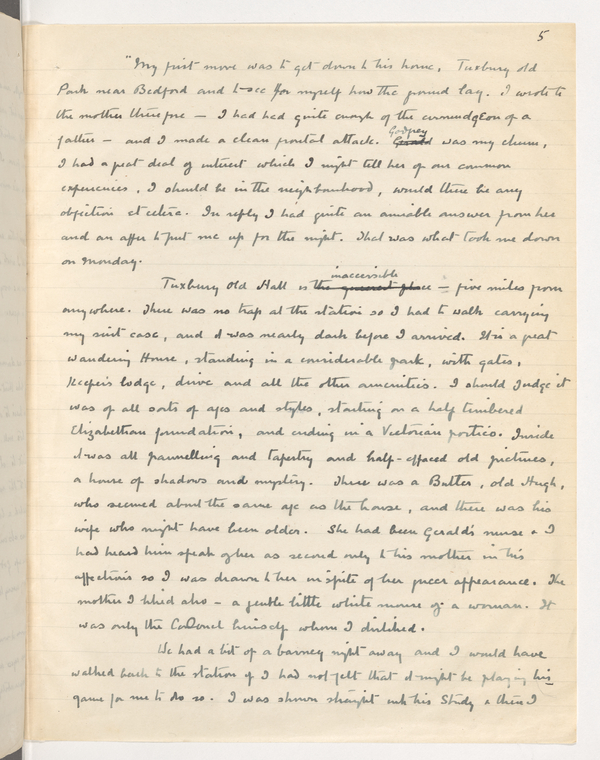 5
"My first move was to get down to his home, Tuxbury old
Park near Bedford and to see for myself how the ground lay. I wrote to
the mother therefore — I had had quite enough of the curmudgeon of a
father — and I made a clean frontal attack. Gerald Godfrey was my chum,
I had a great deal of interest which I might tell her of our common
experiences, I should be in the neighbourhood, would there be any
objection et cetera. In reply I had quite an amiable answer from her
and an offer to put me up for the night. That was what took me down
on Monday.
Tuxbury Old Hall is the queerest place inaccessible — five miles from
anywhere. There was no trap at the station so I had to walk carrying
my suit case, and it was nearly dark before I arrived. It is a great
wandering House, standing in a considerable park, with gates,
Keeper's lodge, drive and all the other amenities. I should judge it
was of all sorts of ages and styles, starting on a half timbered
Elizabethan foundation, and ending in a Victorian portico. Inside
it was all pannelling and tapestry and half-effaced old pictures,
a house of shadows and mystery. There was a Butler, old Hugh,
who seemed about the same age as the house, and there was his
wife who might have been older. She had been Gerald's nurse & I
had heard him speak of her as second only to his mother in his
affections so I was drawn to her in spite of her queer appearance. The
mother I liked also — a gentle little white mouse of a woman. It
was only the Colonel himself whom I disliked.
We had a bit of a barney right away and I would have
walked back to the station if I had not felt that it might be playing his
game for me to do so. I was shown straight into his Study & there I